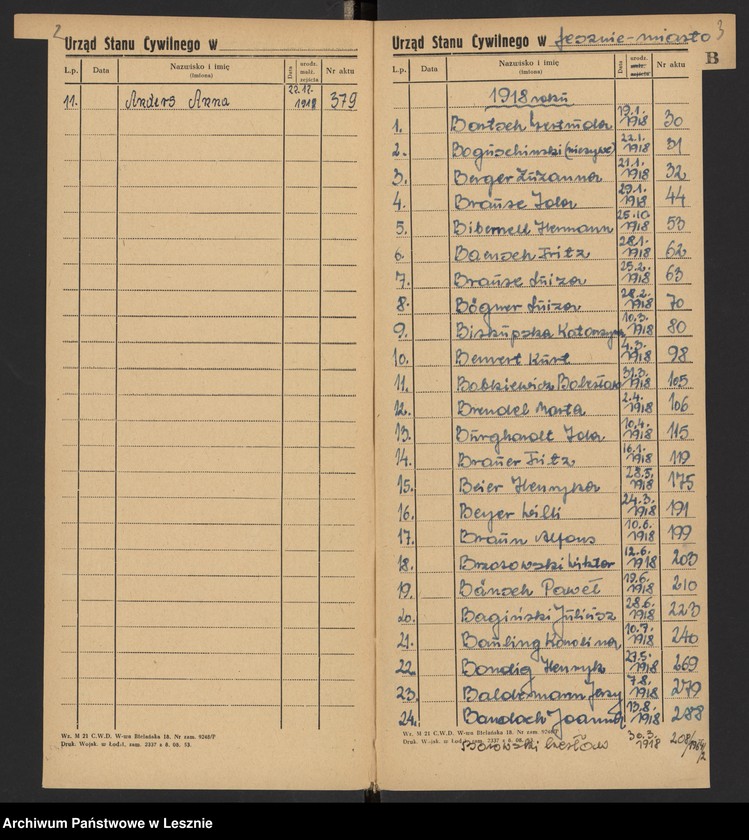 2
Urząd Stanu Cywilnego w
L.p. Data Nazwisko i imię (imiona) Data urodz. małż. zejścia Nr aktu
11. Anders Anna 22.12. 1918 379
Wz. M 21 C.W.D. W-wa Bielańska 18. Nr zam. 9240/P
Druk. Wojsk. w Łodzi, zam. 2337 z 8. 08. 53.
3
Urząd Stanu Cywilnego w Lesznie-miasto
B
L.p. Data Nazwisko i imię (imiona) Data urodz. małż. zejścia Nr aktu
1918 roku
1. Bartsch Gertruda 19.1. 1918 30
2. Boguschinski (nieżywe) 22.1. 1918 31
3. Berger Zuzanna 21.1. 1918 32
4. Brause Ida 29.1. 1918 44
5. Bibernell Hermann 25.10 1918 53
6. Baensch Fritz 28.1. 1918 62
7. Brause Luiza 25.2. 1918 63
8. Bögner Luiza 28.2. 1918 70
9. Biskupska Katarzyna 10.3. 1918 80
10. Bewert Kurt 4.3. 1918 98
11. Babkiewicz Bolesław 31.3. 1918 105
12. Brendel Marta 2.4. 1918 106
13. Burghardt Ida 10.4. 1918 115
14. Brauer Fritz 16.1. 1918 119
15. Beier Henryka 28.5. 1918 175
16. Beyer Willi 24.3. 1918 191
17. Braun Alfons 10.6. 1918 199
18. Brzozowski Wiktor 12.6. 1918 203
19. Bänsch Paweł 19.6. 1918 210
20. Bagiński Juliusz 28.6. 1918 223
21. Bauling Karolina 10.7. 1918 240
22 Bandig Henryk 27.5. 1918 269
23. Baldermann Jerzy 7.8. 1918 279
24. Bandach Joanna 13.8. 1918 288
Wz. M 21 C.W.D. W-wa Bielańska 18. Nr zam. 9240/P
Druk. Wojsk. w Łodzi, zam. 2337 z 8. 08. 53.
Borowski Czesław 30.3. 1918
Archiwum Państwowe w Lesznie